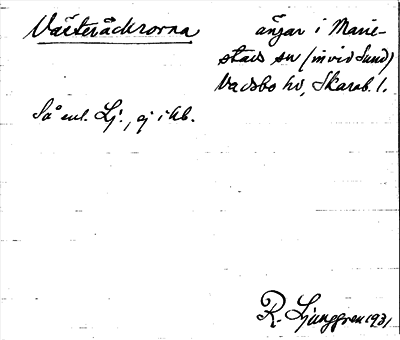 Västeråckrorna ängar i Marie-
stads sn (invid Sund)
Vadsbo hd, Skarab. l.
Så enl. Lj., ej i kb.
R. Ljunggren 1931